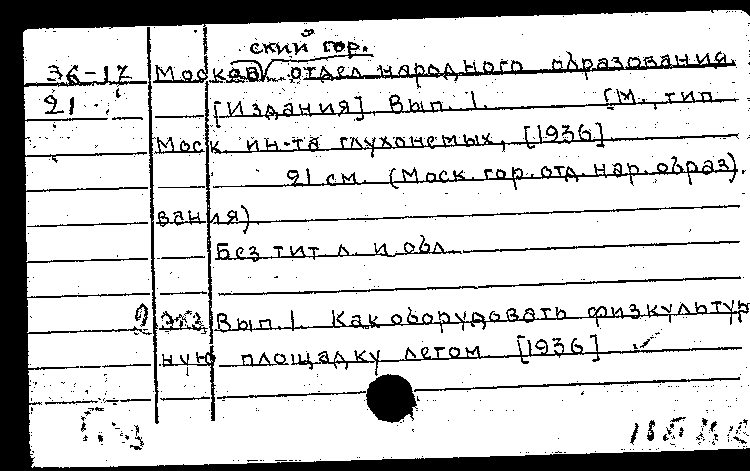 ский гор.
36-17 Москов. отдел народного образования.
21 [Издания]. Вып. 1. [М., тип.
Моск. ин-та глухонемых, [1936]
21 см. (Моск. гор. отд. нар. образ).
вания)
Без тит л. и обл.
2 экз Вып. 1. Как оборудовать физкультур
ную площадку летом [1936]